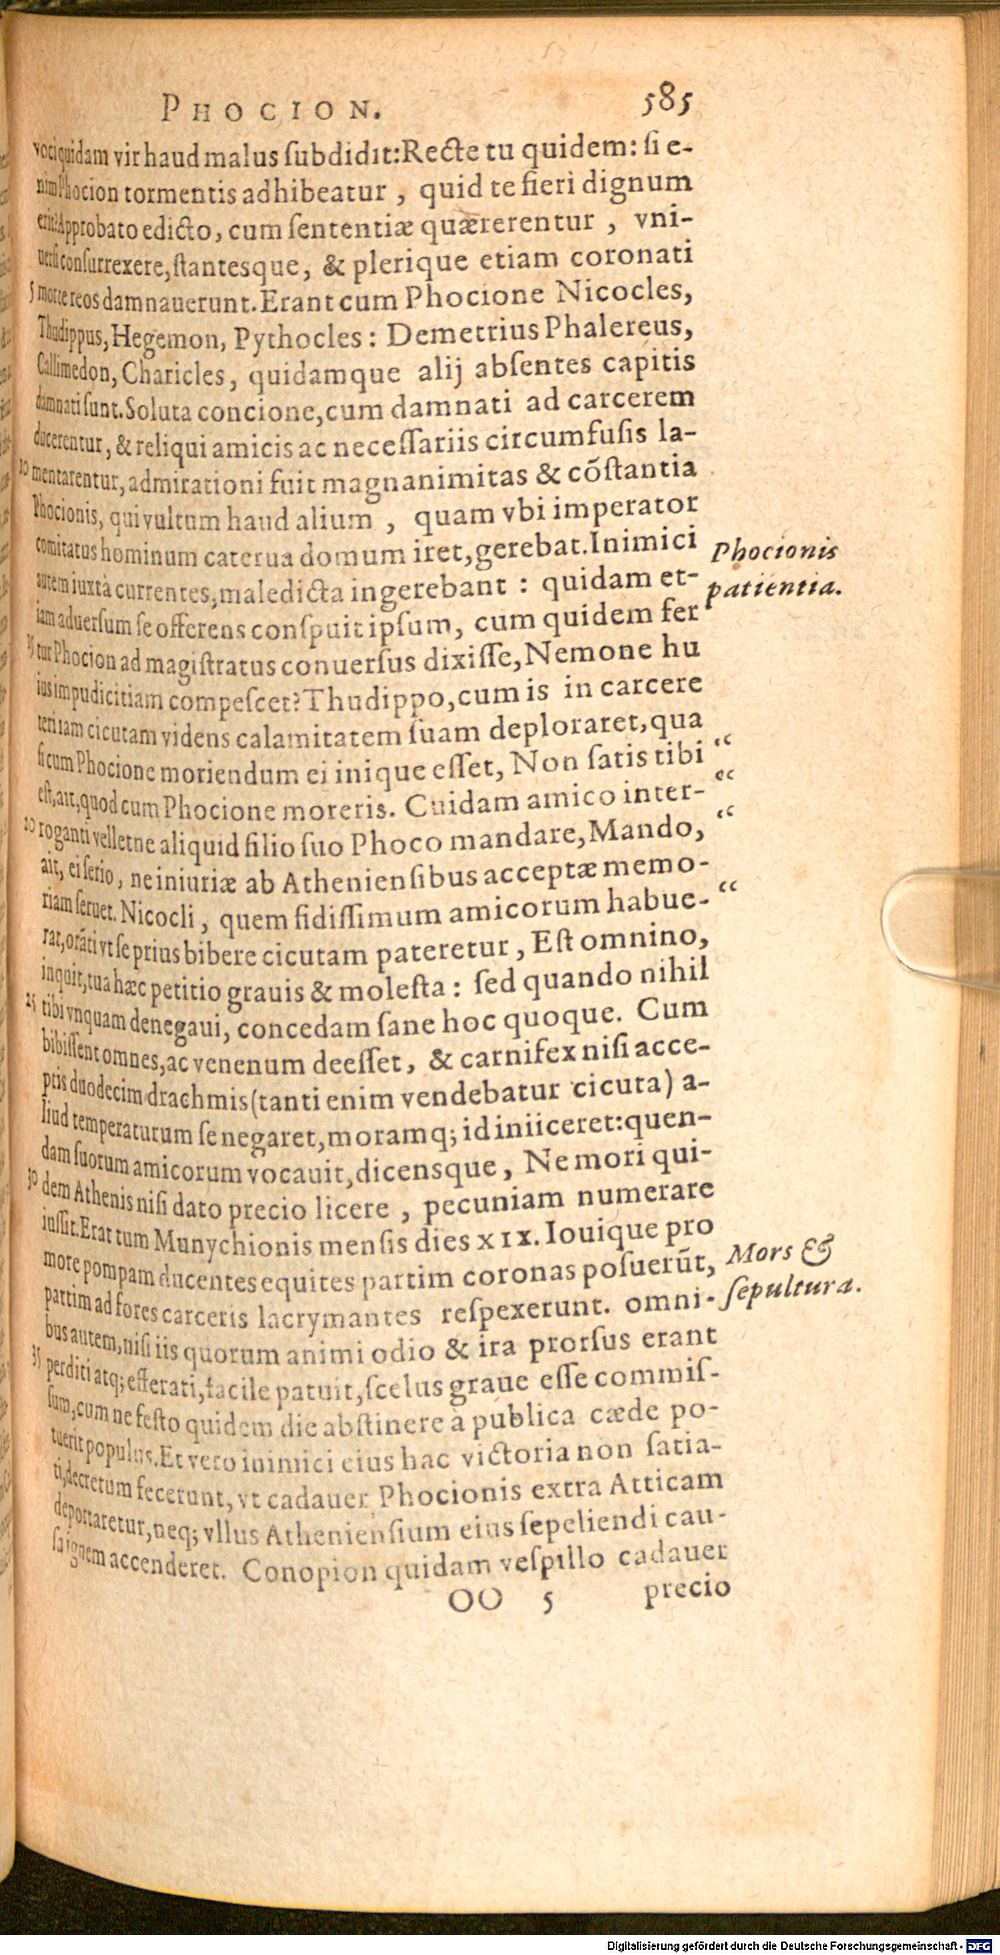 PHOCION. 585
voci quidam vir haud malus subdidit: Recte tu quidem: si e-
nim Phocion tormentis adhibeatur, quid te fieri dignum
erit? Approbato edicto, cum sententiæ quærerentur, vni-
uersi consurrexere, stantesque, & plerique etiam coronati
5 morte reos damnauerunt. Erant cum Phocione Nicocles,
Thudippus, Hegemon, Pythocles: Demetrius Phalereus,
Callimedon, Charicles, quidamque alij absentes capitis
damnati sunt. Soluta concione, cum damnati ad carcerem
ducerentur, & reliqui amicis ac necessariis circumfusis la-
10 mentarentur, admirationi fuit magnanimitas & cõstantia
Phocionis, qui vultum haud alium, quam vbi imperator
comitatus hominum caterua domum iret, gerebat. Inimici
Phocionis
autem iuxtà currentes, maledicta ingerebant: quidam et-
patientia.
iam aduersum se offerens conspuit ipsum, cum quidem fer
15 tur Phocion ad magistratus conuersus dixisse, Nemone hu
ius impudicitiam compescet? Thudippo, cum is in carcere
teri iam cicutam videns calamitatem suam deploraret, qua
si cum Phocione moriendum ei inique esset, Non satis tibi “
est, ait, quod cum Phocione moreris. Cuidam amico inter- “
20 roganti velletne aliquid filio suo Phoco mandare, Mando, “
ait, ei serio, ne iniuriæ ab Atheniensibus acceptæ memo-
riam seruet. Nicocli, quem fidissimum amicorum habue- “
rat, orãti vt se prius bibere cicutam pateretur, Est omnino,
inquit, tua hæc petitio grauis & molesta: sed quando nihil
25 tibi vnquam denegaui, concedam sane hoc quoque. Cum
bibissent omnes, ac venenum deesset, & carnifex nisi acce-
ptis duodecim drachmis (tanti enim vendebatur cicuta) a-
liud temperaturum se negaret, moramq; id iniiceret: quen-
dam suorum amicorum vocauit, dicensque, Ne mori qui-
30 dem Athenis nisi dato precio licere, pecuniam numerare
iussit. Erat tum Munychionis mensis dies XIX. Iouique pro
more pompam ducentes equites partim coronas posuerũt,
Mors &
partim ad fores carceris lacrymantes respexerunt. omni-
sepultura.
bus autem, nisi iis quorum animi odio & ira prorsus erant
35 perditi atq; efferati, facile patuit, scelus graue esse commis-
sum, cum ne festo quidem die abstinere à publica cæde po-
tuerit populus. Et vero inimici eius hac victoria non satia-
ti, decretum fecerunt, vt cadauer Phocionis extra Atticam
deportaretur, neq; vllus Atheniensium eius sepeliendi cau-
sa ignem accenderet. Conopion quidam vespillo cadauer
OO 5 precio
Digitalisierung gefördert durch die Deutsche Forschungsgemeinschaft - DFG